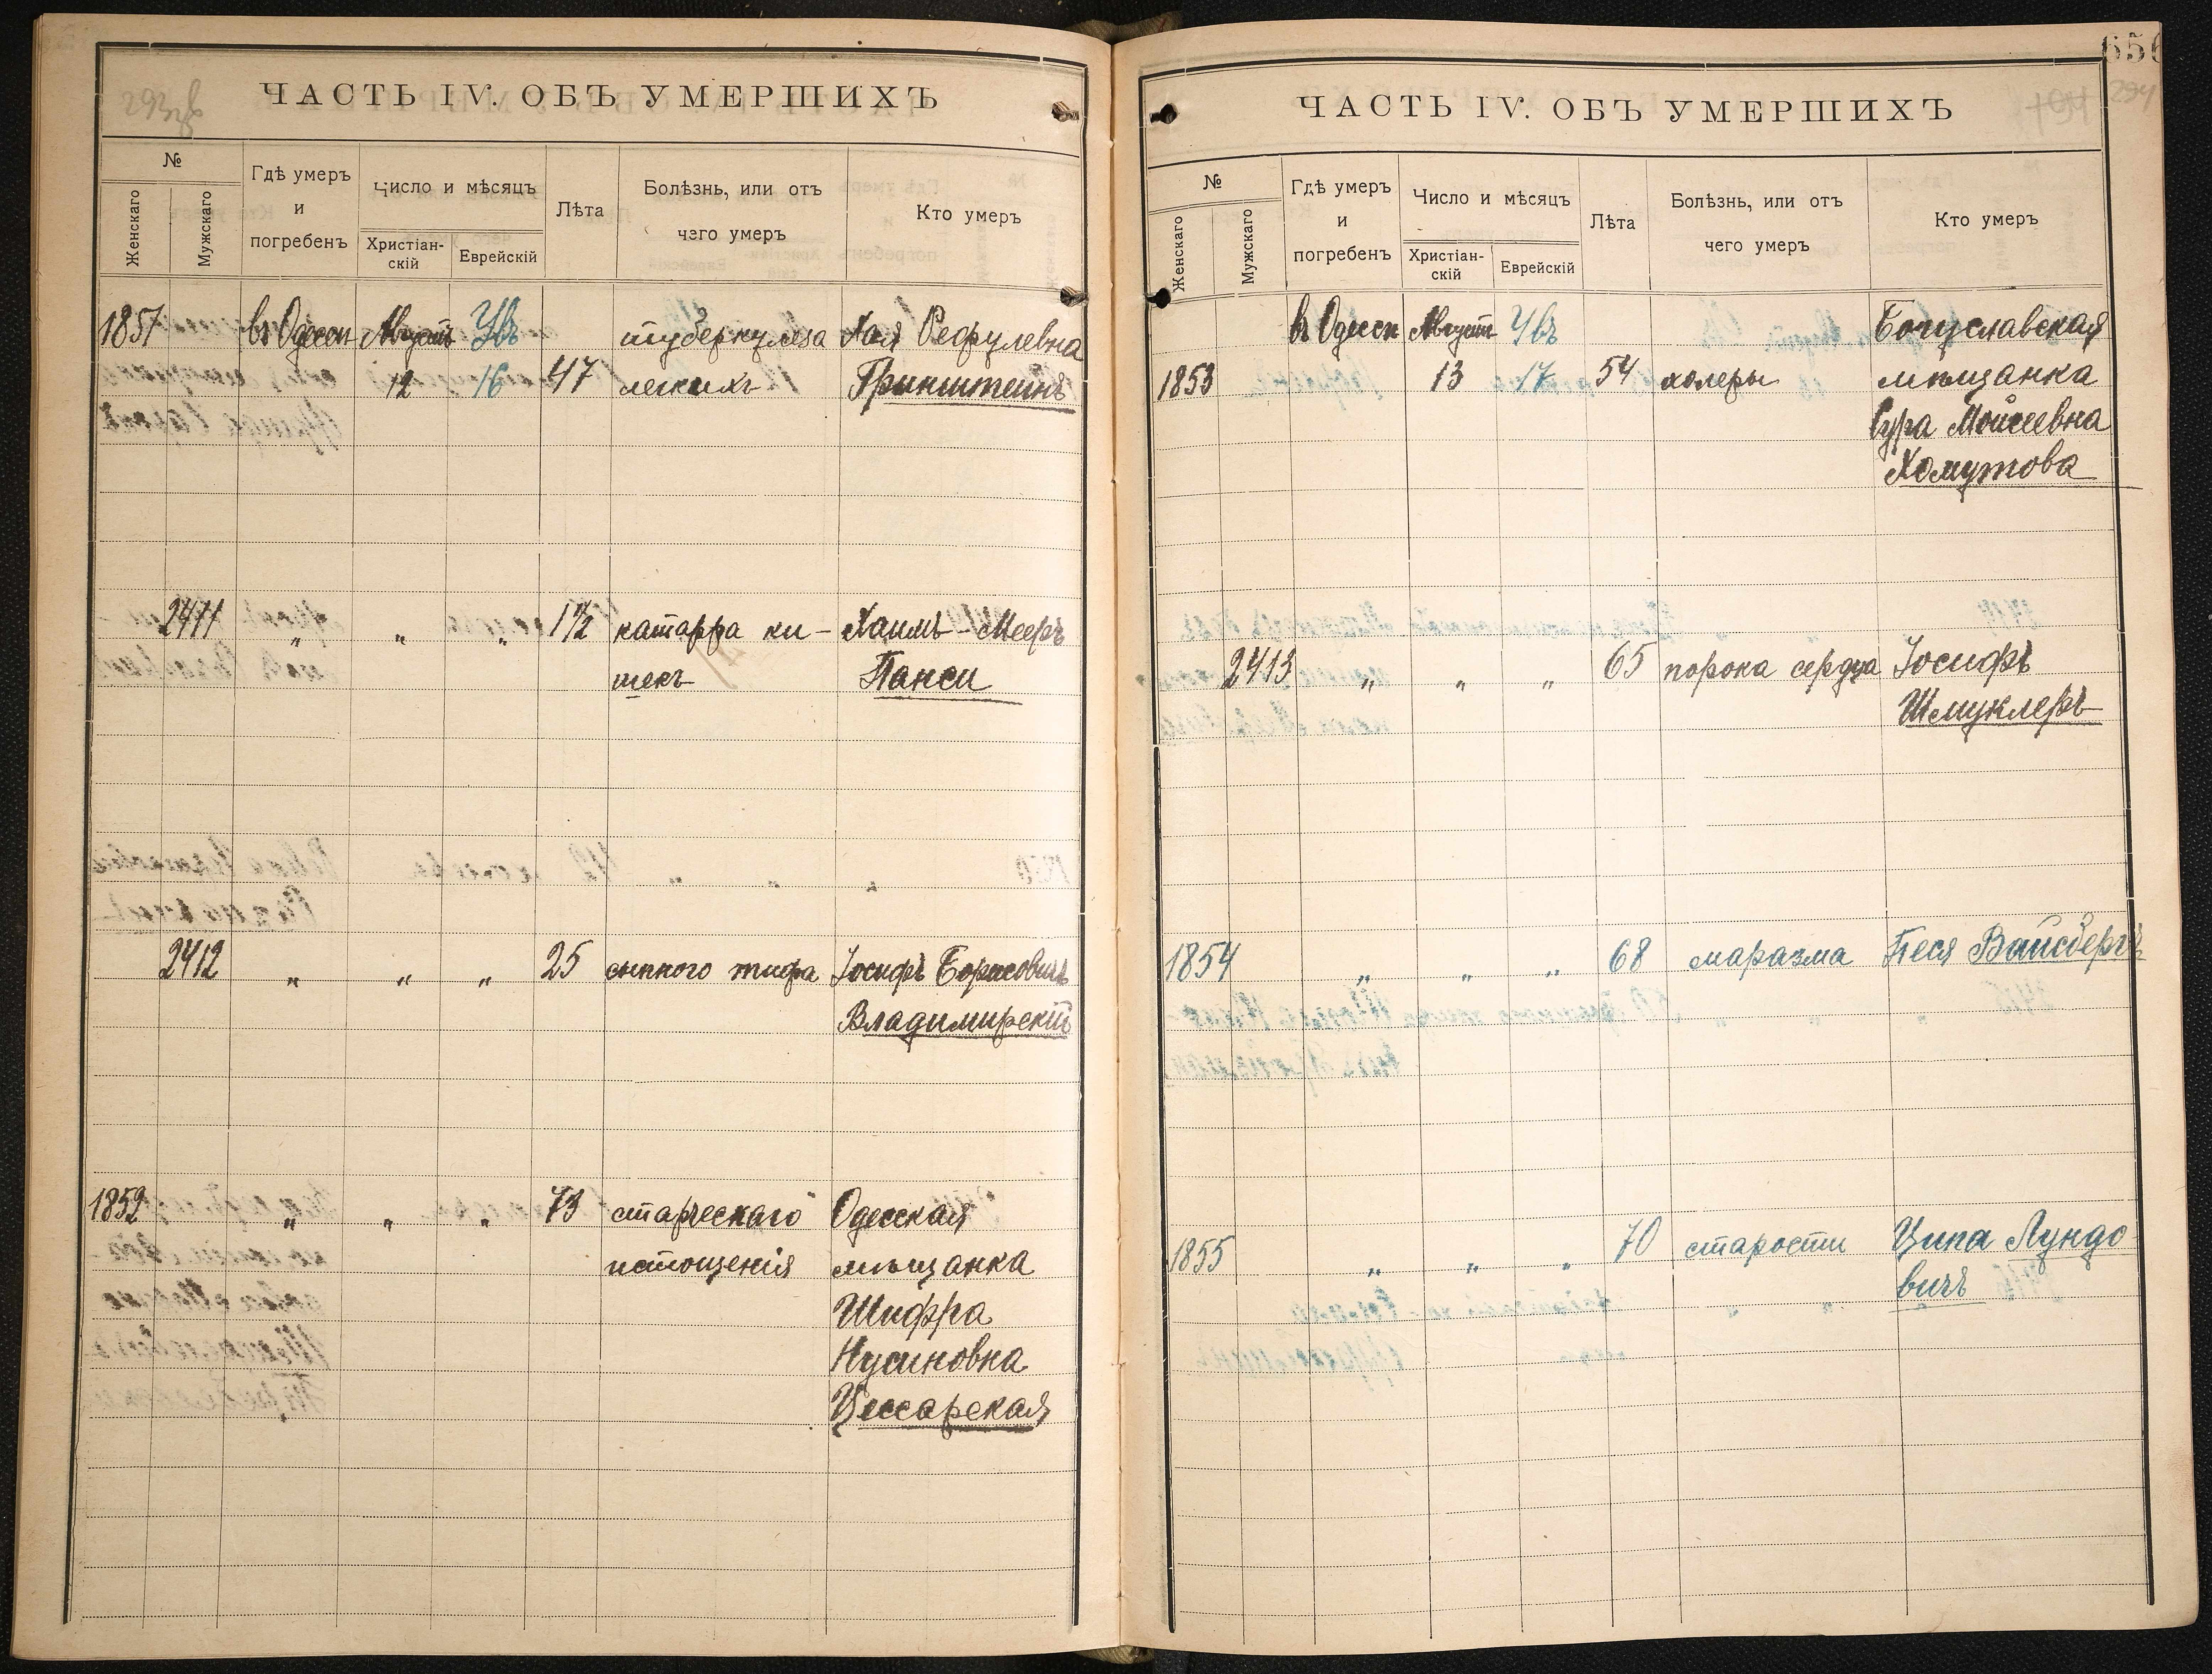 293об
ЧАСТЬ IV. ОБЪ УМЕРШИХЪ
№
Женскаго
Мужскаго
Гдѣ умеръ
и
погребенъ
Число и мѣсяцъ
Христіан-
скій
Еврейскій
Лѣта
Болѣзнь, или отъ
чего умеръ
Кто умеръ
1851 въ Одессѣ Августъ Увъ туберкулеза Хая Рефулевна
12 16 47 легкихъ Гринштейнъ
2411 " " " 1½ катарра ки- Хаимъ-Мееръ
шекъ Панси
2412 " " " 25 сыпного тифа Іосифъ Борисовичъ
Владимирскій
1852 " " " 73 старческаго Одесская
истощенія мѣщанка
Шифра
Нусиновна
Цессарская
656
294
ЧАСТЬ IV. ОБЪ УМЕРШИХЪ
№
Женскаго
Мужскаго
Гдѣ умеръ
и
погребенъ
Число и мѣсяцъ
Христіан-
скій
Еврейскій
Лѣта
Болѣзнь, или отъ
чего умеръ
Кто умеръ
въ Одессѣ Августъ Увъ Богуславская
1853 13 17 54 холеры мѣщанка
Сура Мойсеевна
Хомутова
2413 " " " 65 порока сердца Іосифъ
Шмуклеръ
1854 " " " 68 маразма Песя Вайсбергъ
1855 " " " 70 старости Ципа Лундо
вичъ